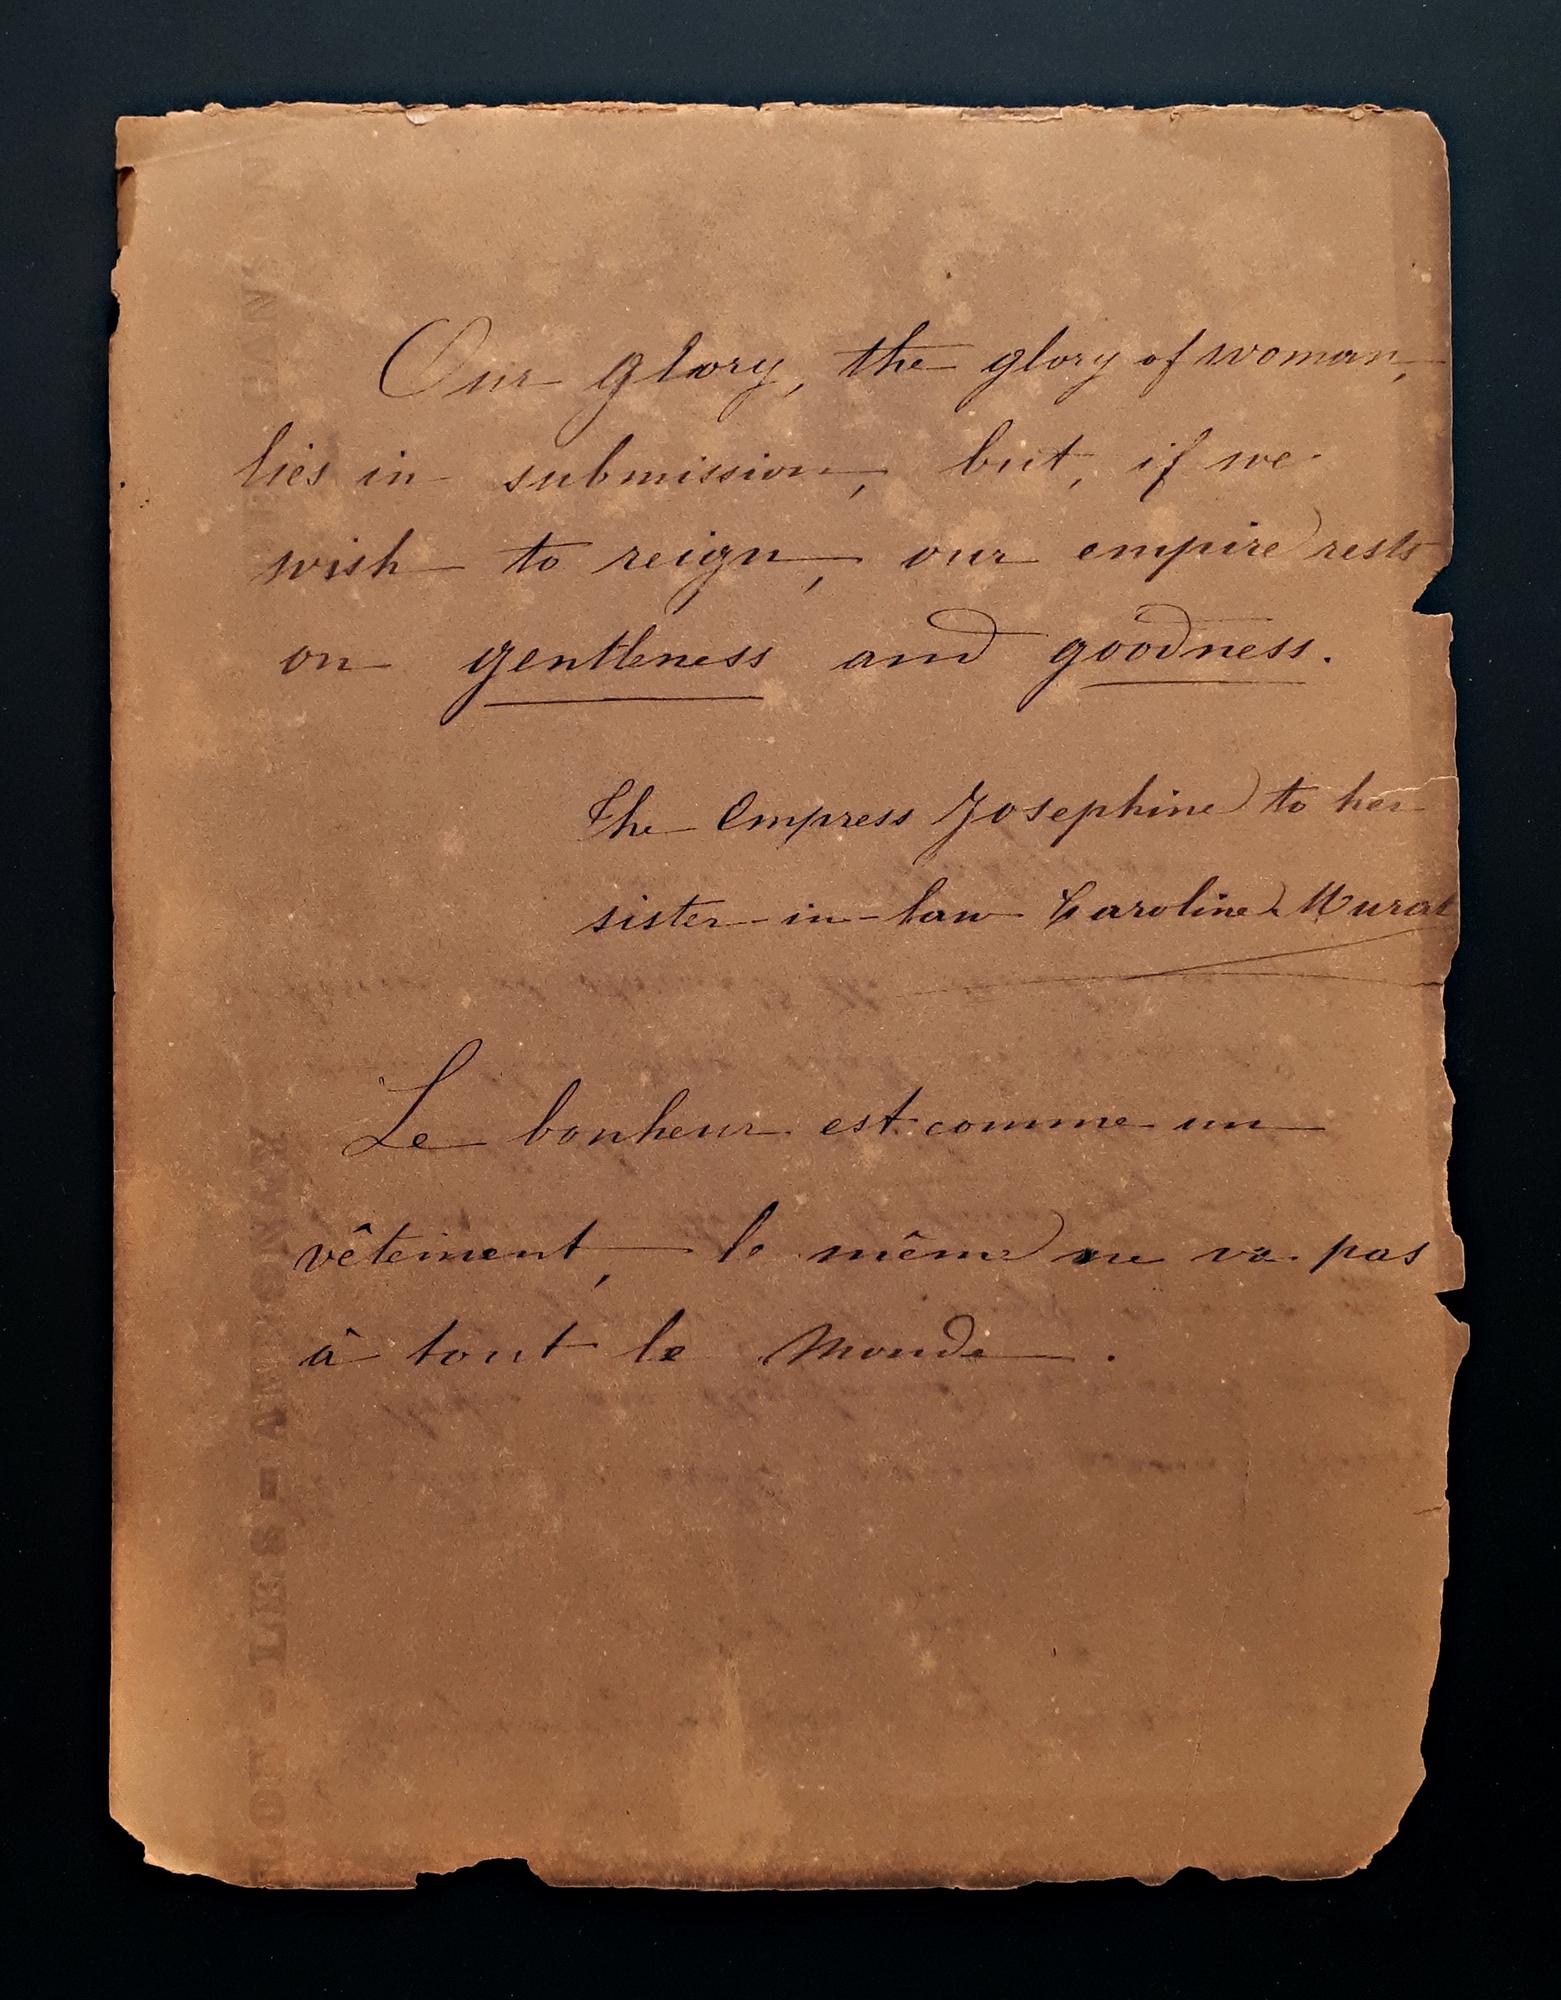 Our glory, the glory of woman,
lies in submission, but, if we
wish to reign, our empire rests
on gentleness and goodness.
The Empress Josephine to her
sister-in-law Caroline Murat
Le bonheur est comme un
vêtement, le même ne va pas
à tout le monde.
LES - ANNONAY